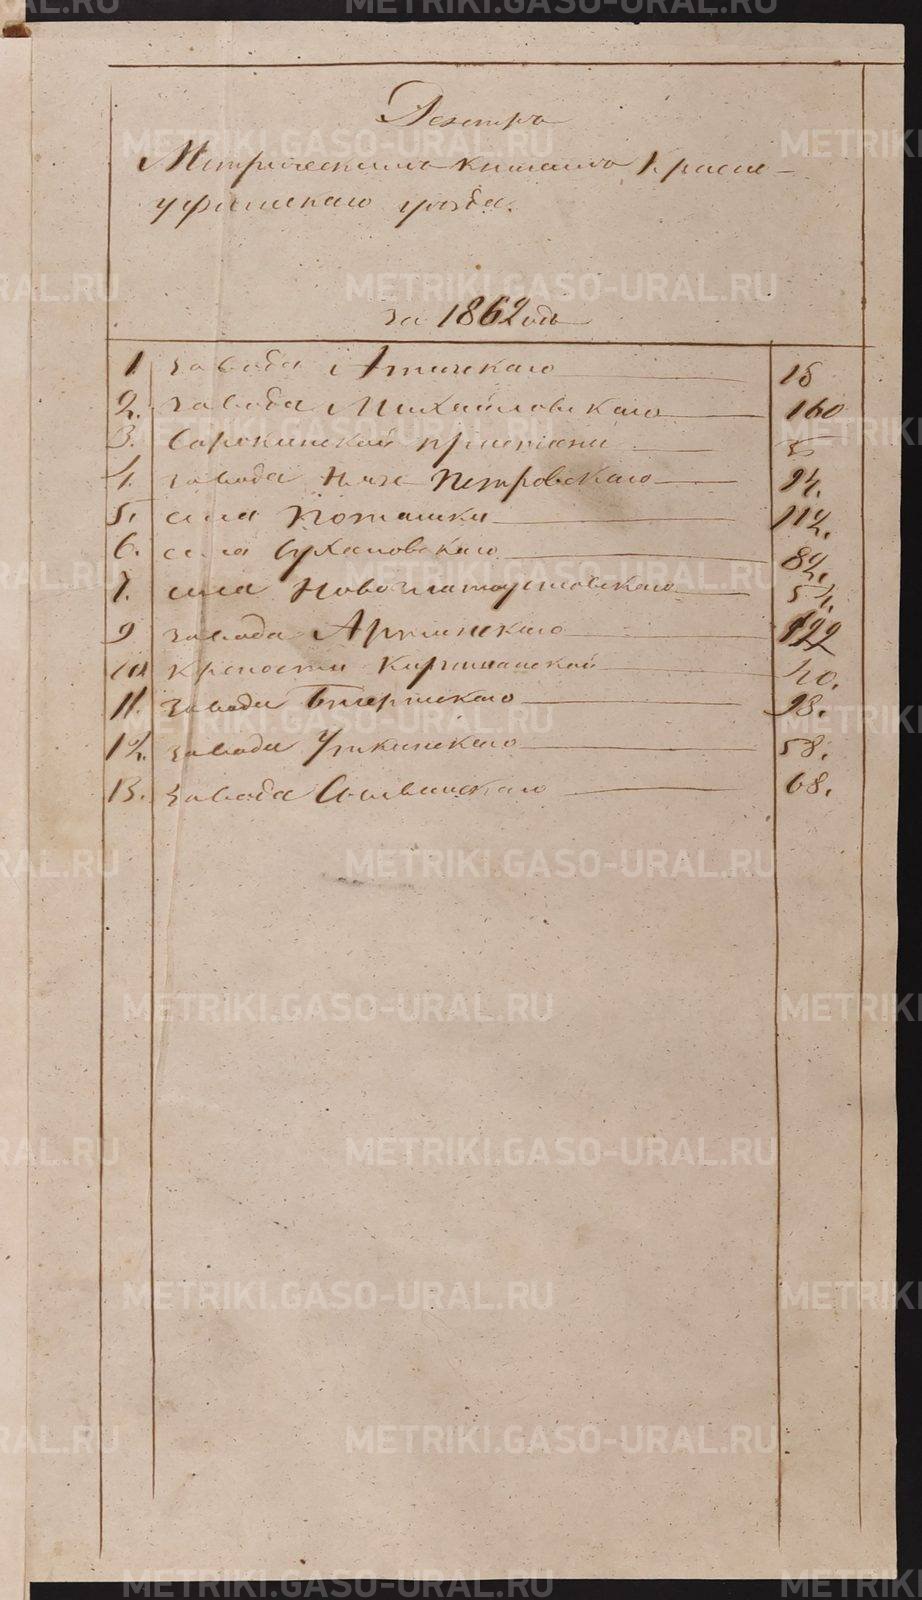 Реэстръ
Метрическимъ книгамъ Красно-
уфимскаго уѣзда.
за 1862 годъ
1 завода Атигскаго 16
2. завода Михайловскаго 160
3. Сорокинской пристани
4. завода Нязе Петровскаго 94.
5. села Поташки 112.
6. села Сухановскаго 82.
7. села Новозлатоустовскаго 52.
9 завода Артинскаго 122
10 крепости Киргишанской 40.
11. завода Бисертскаго 98.
12. завода Уткинскаго 58.
13. завода Сылвинскаго 68.
METRIKI.GASO-URAL.RU